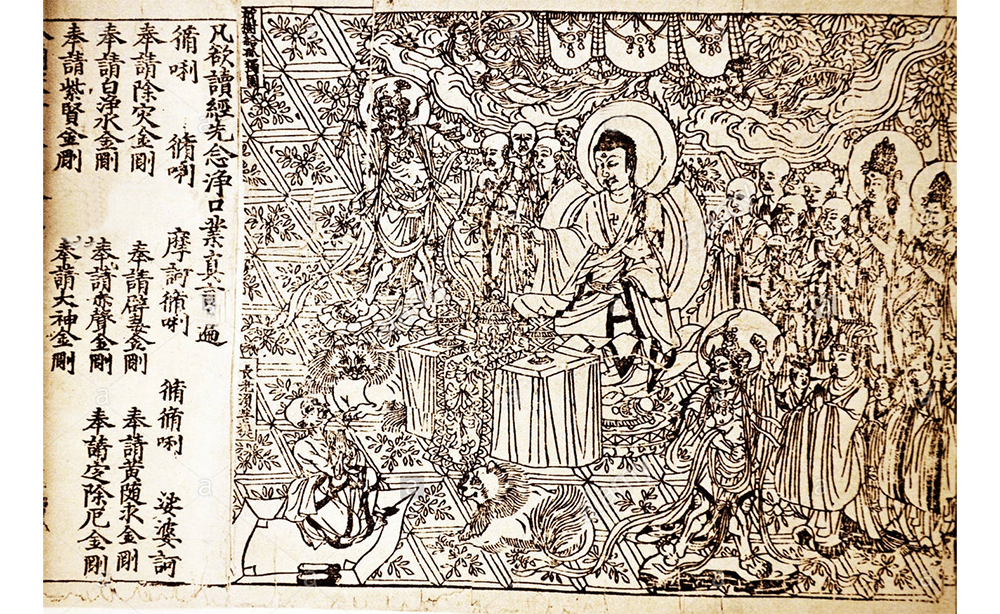 祇樹給孤獨園
長老須菩提
凡欲讀經先念浄口業真言遍
脩唎 脩唎 摩訶脩唎 脩脩唎 娑婆訶
奉請除灾金剛 奉請辟毒金剛 奉請黃随求金剛
奉請白浄水金剛 奉請赤聲金剛 奉請定除厄金剛
奉請紫賢金剛 奉請大神金剛